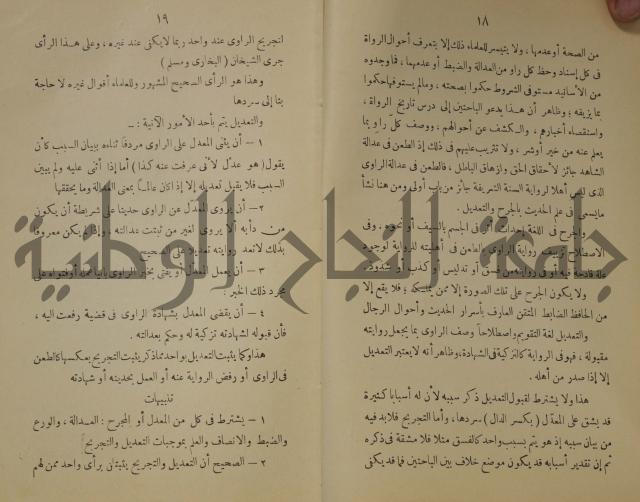 ١٨
من الصحة أو عدمها، ولا يتيسر للعلماء ذلك إلا بتعرف أحوال الرواة
فى كل إسناد وحظ كل راو من العدالة والضبط أو عدمهما، فما وجدوه
من الأسانيد مستوفى الشروط حكموا بصحته، ومالم يستوفها حكموا
بما يزيفه؛ وظاهر أن هذا يدعو الباحثين إلى درس تاريخ الرواة،
واستقصاء أخبارهم، والكشف عن أحوالهم، ووصف كل راو بما
يعلم عنه من خير أو شر، ولا تثريب عليهم فى ذلك إذ الطعن فى عدالة
الشاهد جائز لإحقاق الحق وإزهاق الباطل، فالطعن فى عدالة الراوى
الذى ليس أهلا لرواية السنة الشريفة جائز من باب أولى ومن هنا نشأ
مايسمى فى علم الحديث بالجرح والتعديل.
والجرح فى اللغة إحداث أثر فى الجسم بالسيف أو نحوه. وفى
الاصطلاح تزييف رواية الراوى والطعن فى أهليته للرواية لوجود
علة قادحة فيه أو فى روايته من فسق أو تدليس أو كذب أو شذوذ.
ولا يكون الجرح على تلك الصورة إلا ممن فلا يقع إلا
من الحافظ الضابط المتقن العارف بأسرار الحديث وأحوال الرجال
والتعديل لغة التقويم واصطلاحا وصف الراوى بما يجعل روايته
مقبولة، فهو فى الرواية كالتزكية فى الشهادة، وظاهر أنه لايعتبر التعديل
إلا إذا صدر من أهله.
هذا ولا يشترط لقبول التعديل ذكر سببه لأن له أسبابا كثيرة
قد يشق على المعدّل (بكسر الدال) سردها، وأما التجريح فلابد فيه
من بيان سببه إذ هو يتم بسبب واحد كالفسق مثلا فلا مشقة فى ذكره
ثم إن تقدير أسبابه قد يكون موضع خلاف بين الباحثين فما قد يكفى
١٩
لتجريح الراوى عند واحد ربما لا يكفى عند غيره، وعلى هذا الرأى
جرى الشيخان (البخارى ومسلم)
وهذا هو الرأى الصحيح المشهور وللعلماء أقوال غيره لا حاجة
بنا إلى سردها
والتعديل يتم بأحد الأمور الآتية: ــ
١ – أن يثنى المعدل على الراوى مردفا ثناءه ببيان السبب كأن
يقول (هو عدل لأنى عرفت عنه كذا) أما إذا أثنى عليه ولم يبين
السبب فلا يقبل تعديله إلا إذا كان عالما بمعنى العدالة وما يحققها
٢ – أن يروى المعدّل عن الراوى حديثا على شريطة أن يكون
من دأبه ألا يروى لغير من ثبتت عدالته، وإذا لم يكن معروفا
بذلك لاتعد روايته تعديلا على الصحيح
٣ – أن يعمل المعدل أو يفتى بخبر الراوى على
مجرد ذلك الخبر:
٤ – أن يقضى المعدل بشهادة الراوى فى قضية رفعت اليه،
فأن قبوله لشهادته تزكية له وحكم بعدالته.
هذا وكما يثبت التعديل بواحد مماذكر يثبت التجريح بعكسها كالطعن
فى الراوى أو رفض الرواية عنه أو العمل بحديثه أو شهادته
تنبيهات
١ – يشترط فى كل من المعدل أو المجرح: العدالة، والورع
والضبط والانصاف والعلم بموجبات التعديل والتجريح
٢ – الصحيح أن التعديل والتجريح يثبتان برأى واحد ممن لهم
جامعة النجاح الوطنية